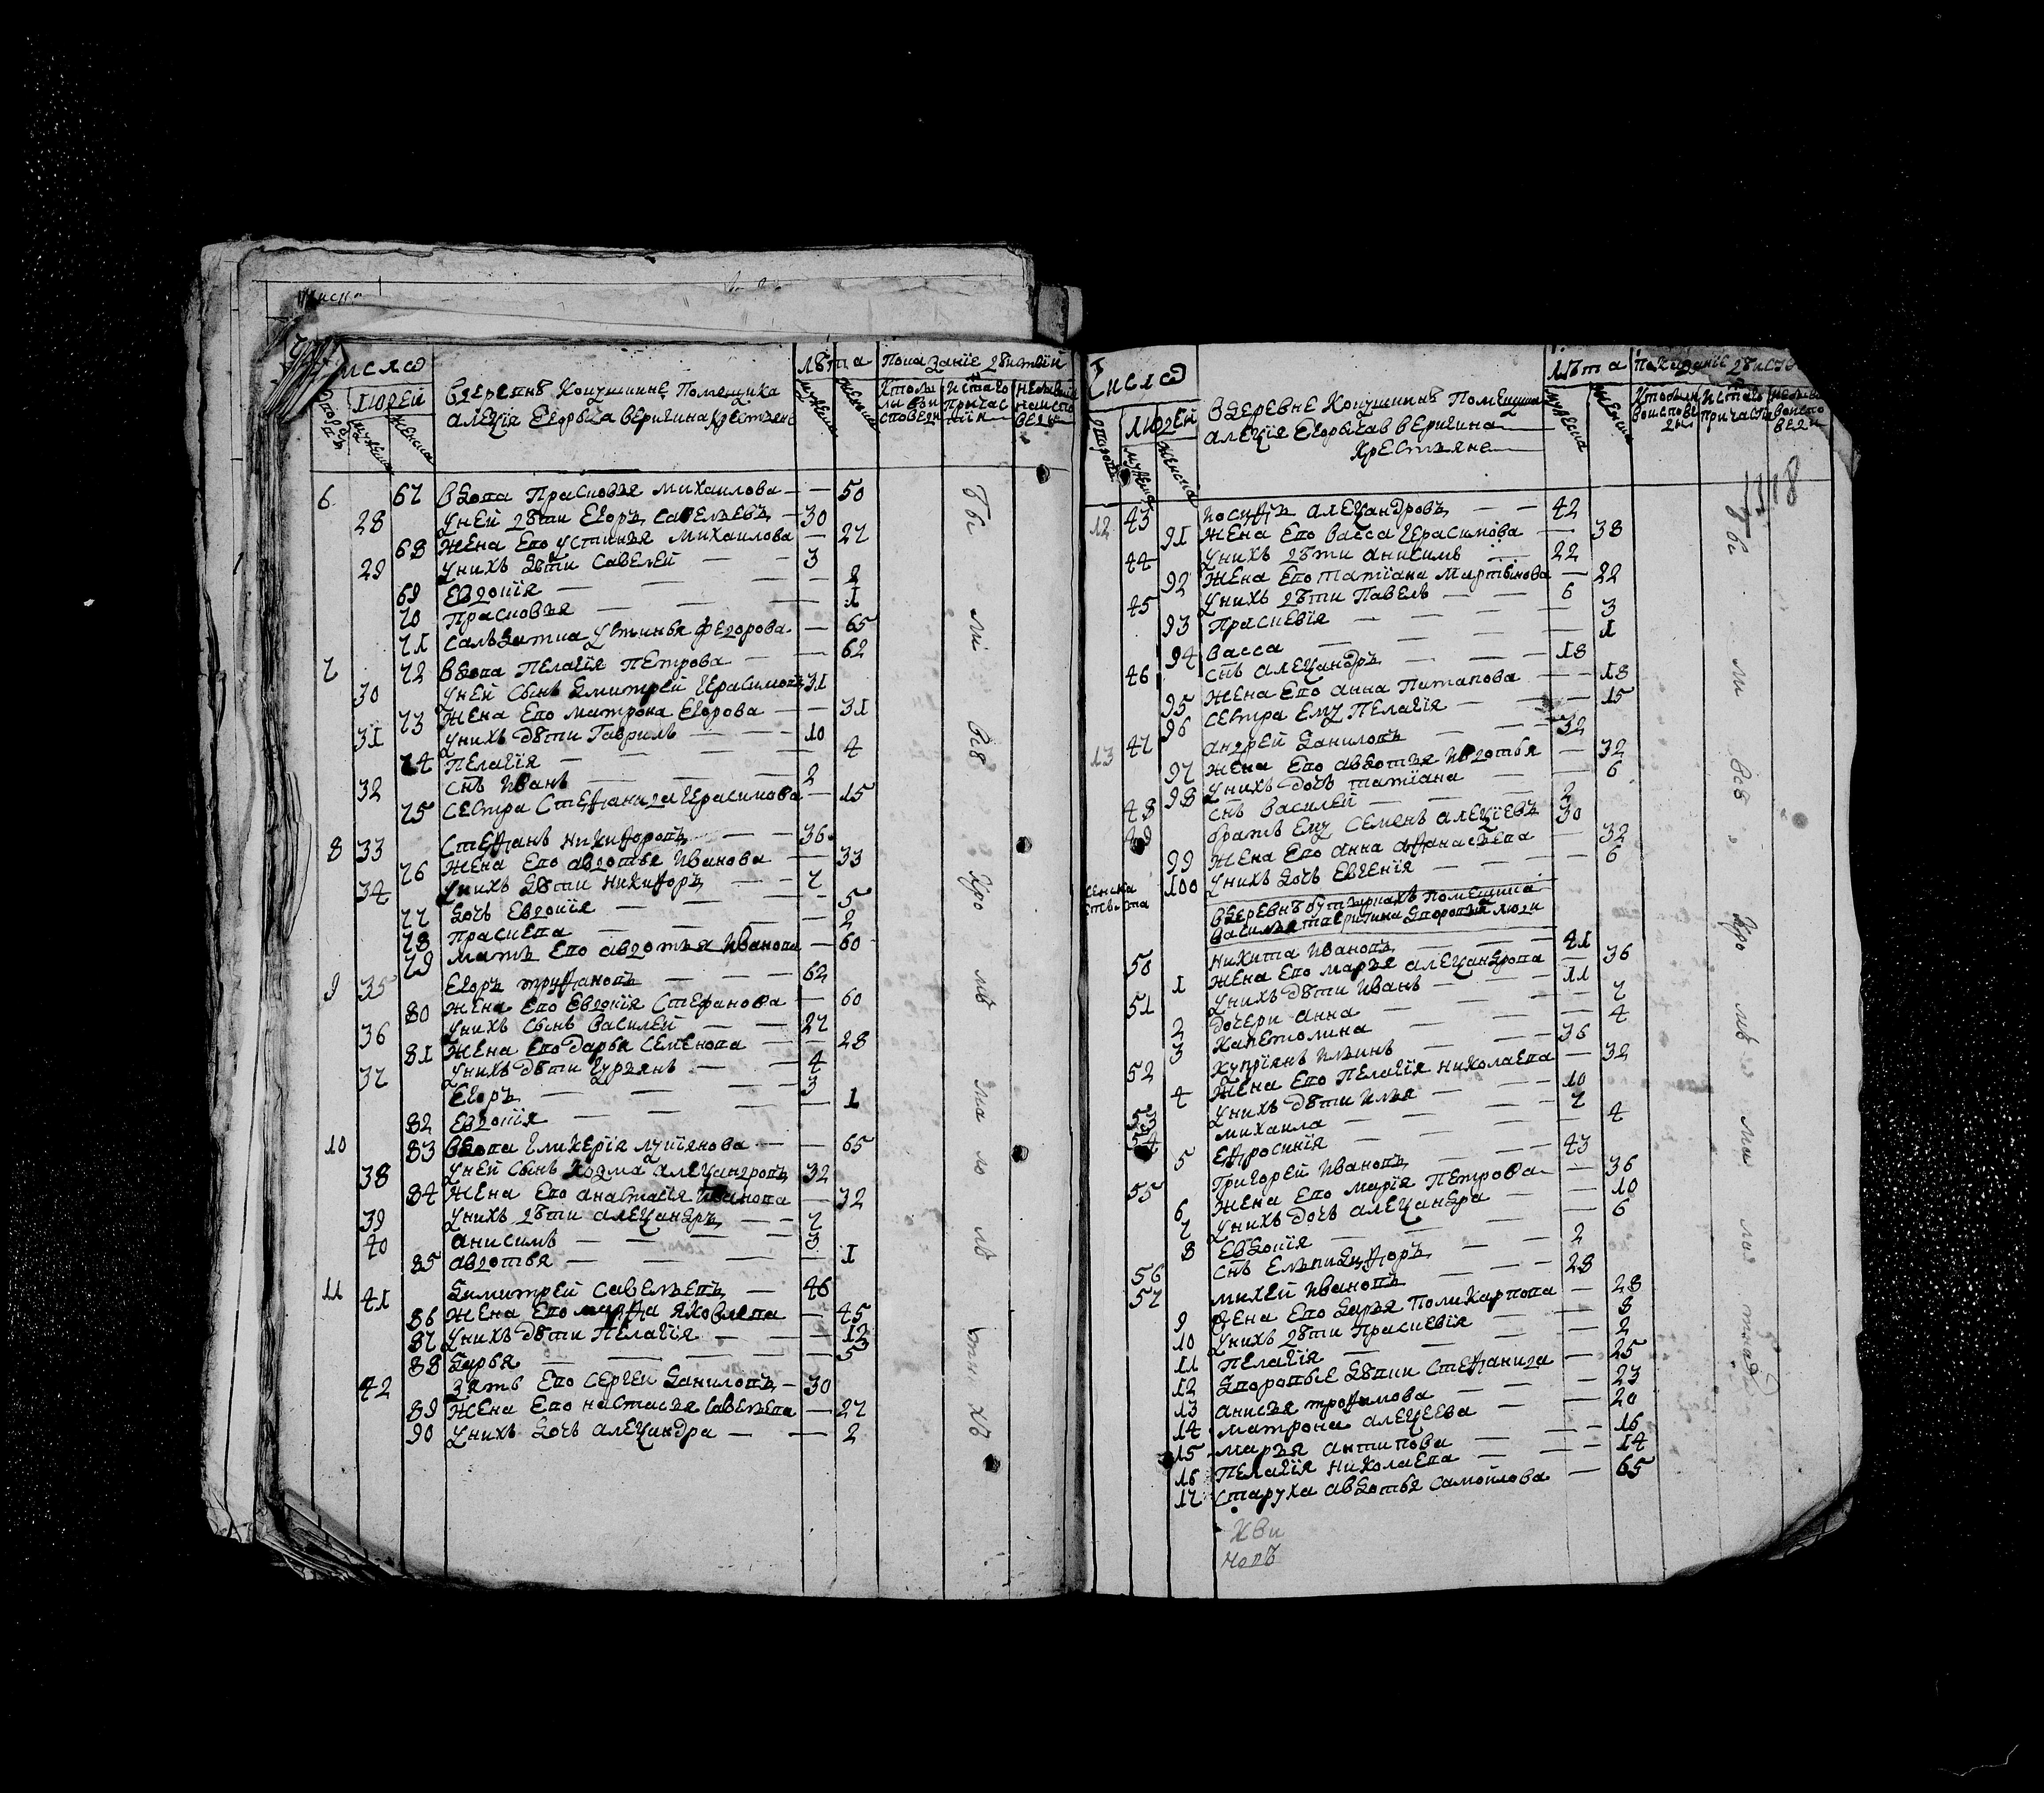 Число
людей
вдеревнѣ Кокушкине Помещика
алеѯiя Егорыча веригина крестьяне
лѣта
Показанiе дѣиствiи
6 67 вдова Прасковья михаилова — — 50
28 унеи дѣти Егоръ савельевъ — 30
68 жена Его устинья михаилова — 27
29 унихъ дѣти Савелеи — — 3
69 Евдокiя — — — 2
70 Прасковья — — — 1
71 салъдатка устинья федорова — 65
7 72 вдова Пелагiя Петрова — — 62
30 унеи сынъ дмитреи герасимовъ 31
73 жена Его матрона Егорова — — 31
31 унихъ дѣти Гаврилъ — — 10
74 Пелагiя — — — 4
32 снъ Иванъ — — — 2
75 сестра Стефанида герасимова — 15
8 33 Стефанъ никифоровъ — — 36
76 жена Его авдотья Иванова — 33
34 унихъ дѣти никифоръ — — 7
77 дочь Евдокiя — — — 5
78 Праскева — — — 2
79 мать Его авдотья Иванова — 60
9 35 Егоръ труфановъ — — 62
80 жена Его Евдокiя Стефанова — 60
36 унихъ сынъ василеи — — 27
81 жена Его дарья семенова — — 28
37 унихъ дѣти гурьянъ — — 4
Егоръ — — — 3
82 Евдокiя — — — 1
10 83 вдова гликерiя лукiянова — — 65
38 унеи сынъ козма алеѯандровъ 32
84 жена Его анастасiя Иванова — 32
39 унихъ дѣти алеѯандръ — — 7
40 анисимъ — — — 3
85 авдотья — — — 1
11 41 димитреи савельевъ — 46
86 жена Его марфа яковлева — 45
87 унихъ дѣти Пелагiя — — 13
88 дарья — — — 5
42 зять Его сергеи даниловъ — 30
89 жена Его настасья савельева — 27
90 унихъ дочь алеѯандра — — 2
Число
людеи
вдеревне Кокушкинѣ Помещика
алеѯiя Егорычав веригина
крестьяне
лѣта
Показанiе
118
12 43 иосифъ алеѯандровъ — — 42
91 жена Его васса герасимова — 38
44 унихъ дѣти анисимъ — — 22
92 жена Его татiана мартынова — 22
45 унихъ дѣти Павелъ — — 6
93 Праскевiя — — — 3
94 васса — — — 1
46 снъ алеѯандръ — — 18
95 жена Его анна Питапова — — 18
96 сестра Ему Пелагiя — — 15
13 47 андреи даниловъ — — 32
97 жена Его авдотья — 32
98 унихъ дочь татiана — — 6
48 снъ василеи — — — 2
49 братъ Ему семенъ алеѯiевъ 30
99 жена Его анна афанасьева — 32
100 унихъ дочь Евгенiя — — 6
вдеревнѣ Помещика
люди
50 никита Ивановъ — — 41
1 жена Его марья алеѯандрова — 36
51 унихъ дѣти Иванъ — — 11
2 дочери анна — — — 7
3 капетолина — — — 4
52 купрiянъ ильинъ — — 36
4 жена Его Пелагiя николаева — 32
53 унихъ дѣти илья — — 10
54 михаила — — — 7
5 Ефросинiя — — — 4
55 григореи Ивановъ — — 43
6 жена Его марiя Петрова — 36
7 унихъ дочь алеѯандра — — 10
8 Евдокiя — — — 6
56 снъ Елпидифоръ — — 2
57 михеи Ивановъ — — 28
9 жена Его дарья Поликарпова — 28
10 унихъ дѣти Праскевiя — — 8
11 Пелагiя — — — 2
12 дворовые дѣвки стефанида — 25
13 анисья трофимова — — 23
14 матрона алеѯеева — — 20
15 марья антипова — — 16
16 Пелагiя николаева — — 14
17 старуха авдотья самоилова — 65